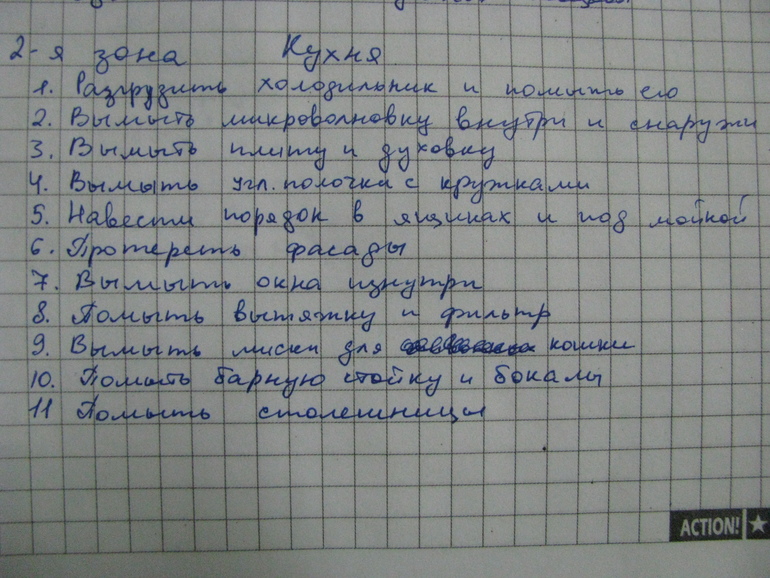 2-я зона Кухня
1. Разгрузить холодильник и помыть его
2. Вымыть микроволновку внутри и снаружи
3. Вымыть плиту и духовку
4. Вымыть угл. полочка с кружками
5. Навести порядок в ящиках и под мойкой
6. Протереть фасады
7. Вымыть окна изнутри
8. Помыть вытяжку и фильтр
9. Вымыть миски для кошки
10. Помыть барную стойку и бокалы
11 Помыть столешницы
ACTION!